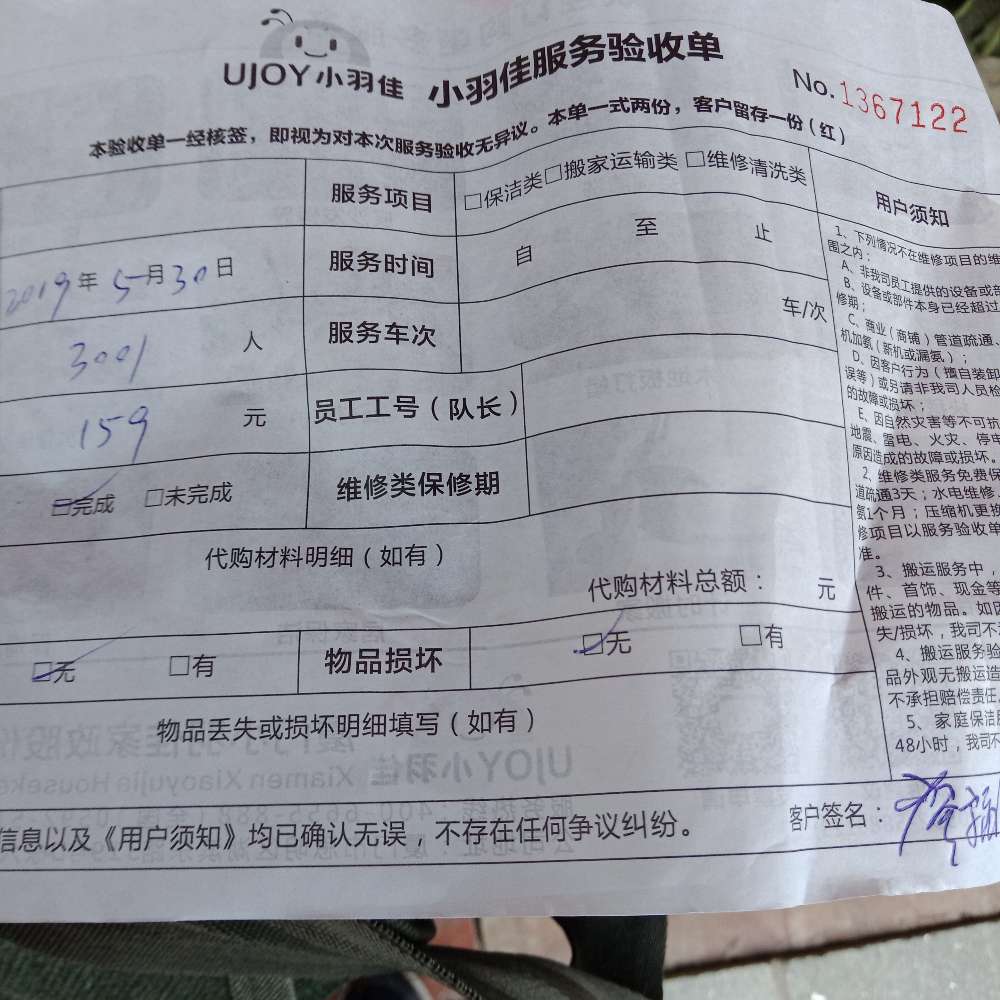 UJOY小羽佳 小羽佳服务验收单
No.1367122
本验收单一经核签，即视为对本次服务验收无异议。本单一式两份，客户留存一份（红）
服务项目 □保洁类□搬家运输类 □维修清洗类
2019年5月30日 服务时间 自 至 止
3001 人 服务车次 车/次
159 元 员工工号（队长）
□完成 □未完成 维修类保修期
代购材料明细（如有）
代购材料总额： 元
□无 □有 物品损坏 □无 □有
物品丢失或损坏明细填写（如有）
信息以及《用户须知》均已确认无误，不存在任何争议纠纷。 客户签名：
用户须知
1、下列情况不在维修项目的维
围之内：
A、非我司员工提供的设备或部
B、设备或部件本身已经超过
修期；
C、商业（商铺）管道疏通、
机加氨（新机或漏氨）；
D、因客户行为（擅自装卸
误等）或另请非我司人员检
的故障或损坏；
E、因自然灾害等不可抗
地震、雷电、火灾、停电
原因造成的故障或损坏。
2、维修类服务免费保
道疏通3天；水电维修
氨1个月；压缩机更换
修项目以服务验收单
准。
3、搬运服务中，
件、首饰、现金等
搬运的物品。如因
失/损坏，我司不
4、搬运服务验
品外观无搬运造
不承担赔偿责任
5、家庭保洁服
48小时，我司不